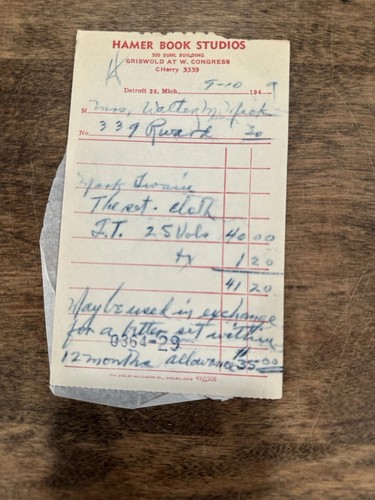 HAMER BOOK STUDIOS
509 BUHL BUILDING
GRISWOLD AT W. CONGRESS
CHerry 3339
Detroit 26, Mich. 9-10 1949
M Mrs. Walter
No. 339
30
Mark Twain
The set. cloth
I.T. 25 Vols 40 00
tx 1 20
41 20
May be used in exchange
for a better set within
0364-29
12 months allowance $35.00